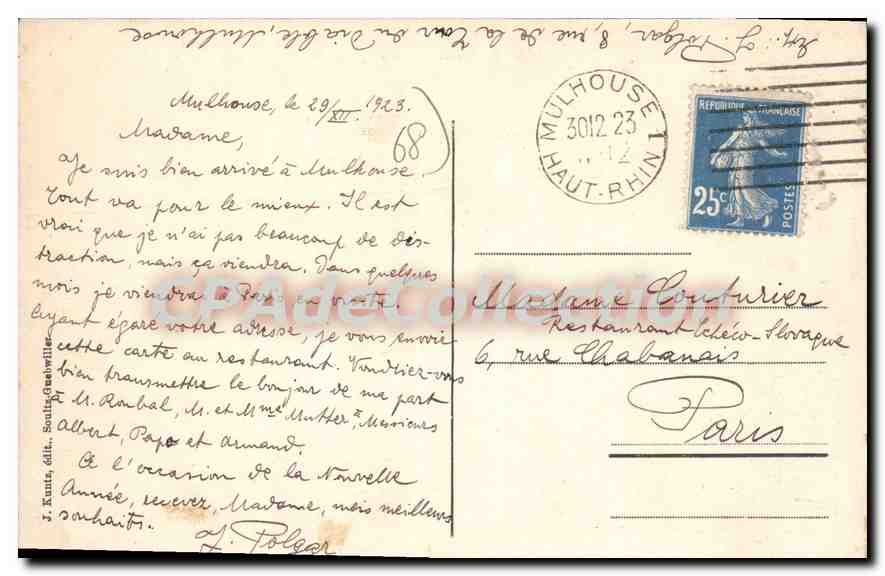 Exp.: J. Polgar, 8, rue de la Tour du Diable, Mulhouse
Mulhouse, le 29/XII. 1923.
68
Madame,
Je suis bien arrivé à Mulhouse.
Tout va pour le mieux. Il est
vrai que je n'ai pas beaucoup de dis-
traction, mais ça viendra. Dans quelques
mois je viendrai à Paris en visite.
Ayant égaré votre adresse, je vous envoie
cette carte au restaurant. Voudriez-vous
bien transmettre le bonjour de ma part
à M. Roubal, M. et Mme Mutter, Messieurs
Albert, Papo et Armand.
A l'occasion de la Nouvelle
Année, recevez, Madame, mes meilleurs
souhaits.
J. Polgar
J. Kuntz, édit., Soultz-Guebwiller
MULHOUSE 1
3012 23
HAUT-RHIN
REPUBLIQUE FRANÇAISE
25c
POSTES
Madame Couturier
Restaurant Tchéco-Slovaque
6, rue Chabanais
Paris
CPAdeCollection